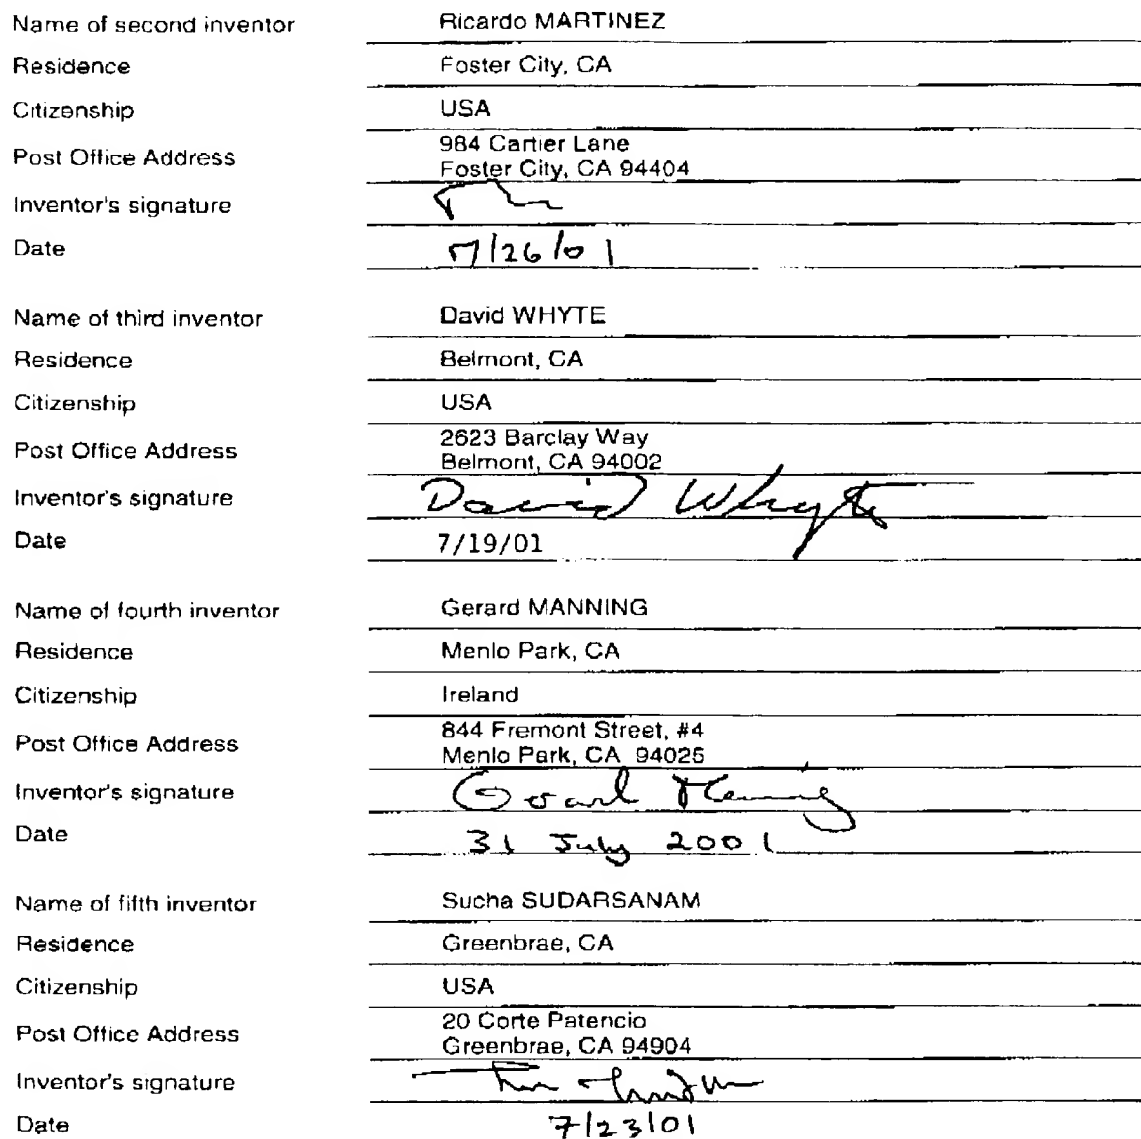 Name of second inventor Ricardo MARTINEZ
Residence Foster City, CA
Citizenship USA
Post Office Address 984 Cartier Lane
Foster City, CA 94404
Inventor's signature
Date 7/26/01
Name of third inventor David WHYTE
Residence Belmont, CA
Citizenship USA
Post Office Address 2623 Barclay Way
Belmont, CA 94002
Inventor's signature David Whyte
Date 7/19/01
Name of fourth inventor Gerard MANNING
Residence Menlo Park, CA
Citizenship Ireland
Post Office Address 844 Fremont Street, #4
Menlo Park, CA 94025
Inventor's signature Gerard Manning
Date 31 July 2001
Name of fifth inventor Sucha SUDARSANAM
Residence Greenbrae, CA
Citizenship USA
Post Office Address 20 Corte Patencio
Greenbrae, CA 94904
Inventor's signature
Date 7/23/01